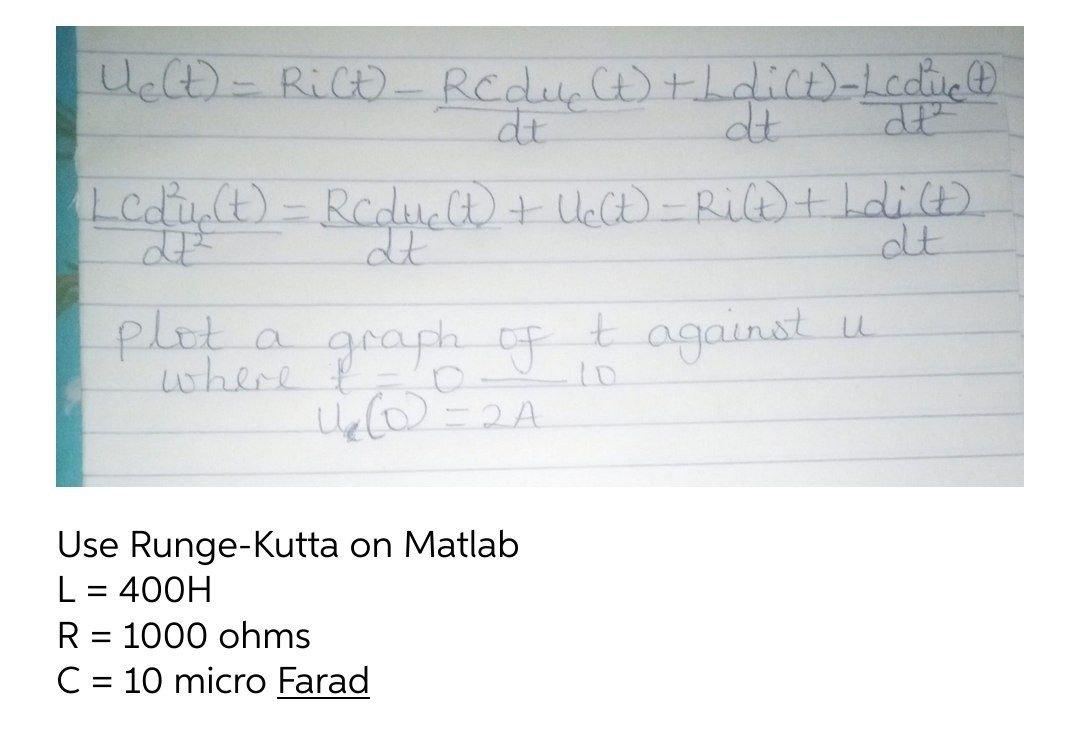 Uc(t) = Ri(t) - Rcduc(t)/dt + Ldi(t)/dt - Lcd²uc(t)/dt²
Lcd²uc(t)/dt² = Rcduc(t)/dt + Uc(t) = Ri(t) + Ldi(t)/dt
plot a graph of t against u
where t = 0 — 10
Uc(0) = 2A
Use Runge-Kutta on Matlab
L = 400H
R = 1000 ohms
C = 10 micro Farad